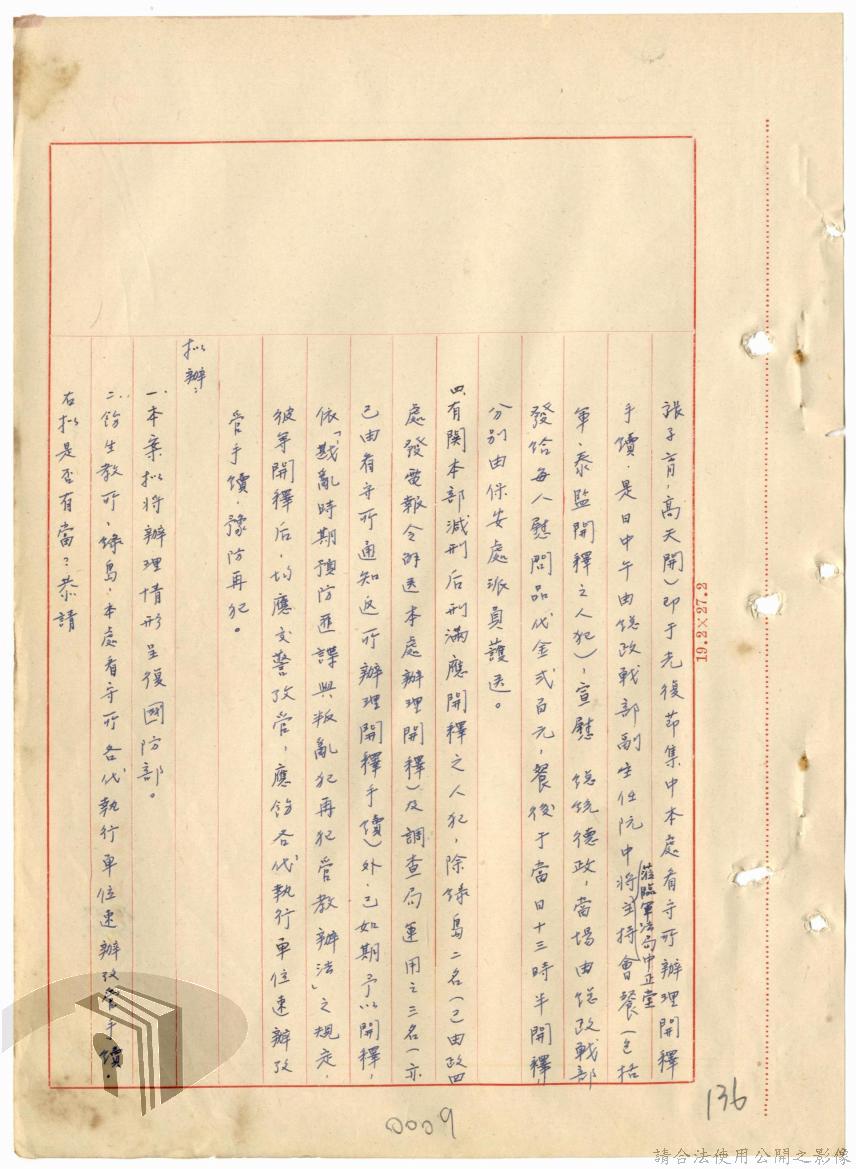 張子育，高天開）即于光復節集中本處看守所辦理開釋
手續，是日中午由總政戰部副主任阮中將蒞臨軍法局中正堂主持會餐（包括
軍、泰監開釋之人犯），宣慰 總統德政，當場由總政戰部
發給每人慰問品代金弍百元，餐後于當日十三時半開釋，
分別由保安處派員護送。
四、有関本部減刑后刑滿應開釋之人犯，除綠島二名（已由政四
處發電報令解送本處辦理開釋）及調查局運用之三名（亦
已由看守所通知返所辦理開釋手續）外，已如期予以開釋，
依「戡亂時期預防匪諜與叛亂犯再犯管教辦法」之規定，
彼等開釋后，均應交警攷管，應飭各代執行單位速辦攷
管手續，豫防再犯。
拟辦：
一、本案拟將辦理情形呈復國防部。
二、飭生教所、綠島、本處看守所各代執行單位速辦攷管手續。
右拟是否有當？恭請
19.2×27.2
136
0009
請合法使用公開之影像